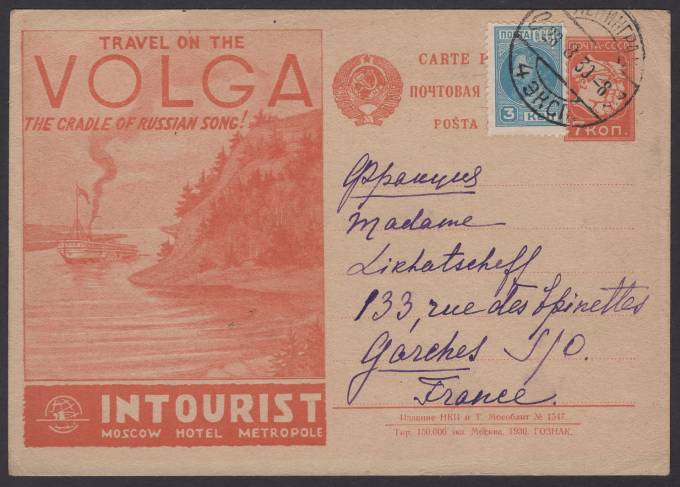 TRAVEL ON THE
VOLGA
THE CRADLE OF RUSSIAN SONG!
INTOURIST
MOSCOW HOTEL METROPOLE
CARTE P
ПОЧТОВАЯ
POŠTA
ПОЧТА СССР
3 КОП.
ПОЧТА-СССР
7 КОП.
ЛЕНИНГРА
Франция
Madame
Likhatscheff
133, rue des Epinettes
Garches S/O.
France.
Издание НКП и Т. Мособлит № 1547.
Тир. 150.000 экз. Москва, 1930. ГОЗНАК.